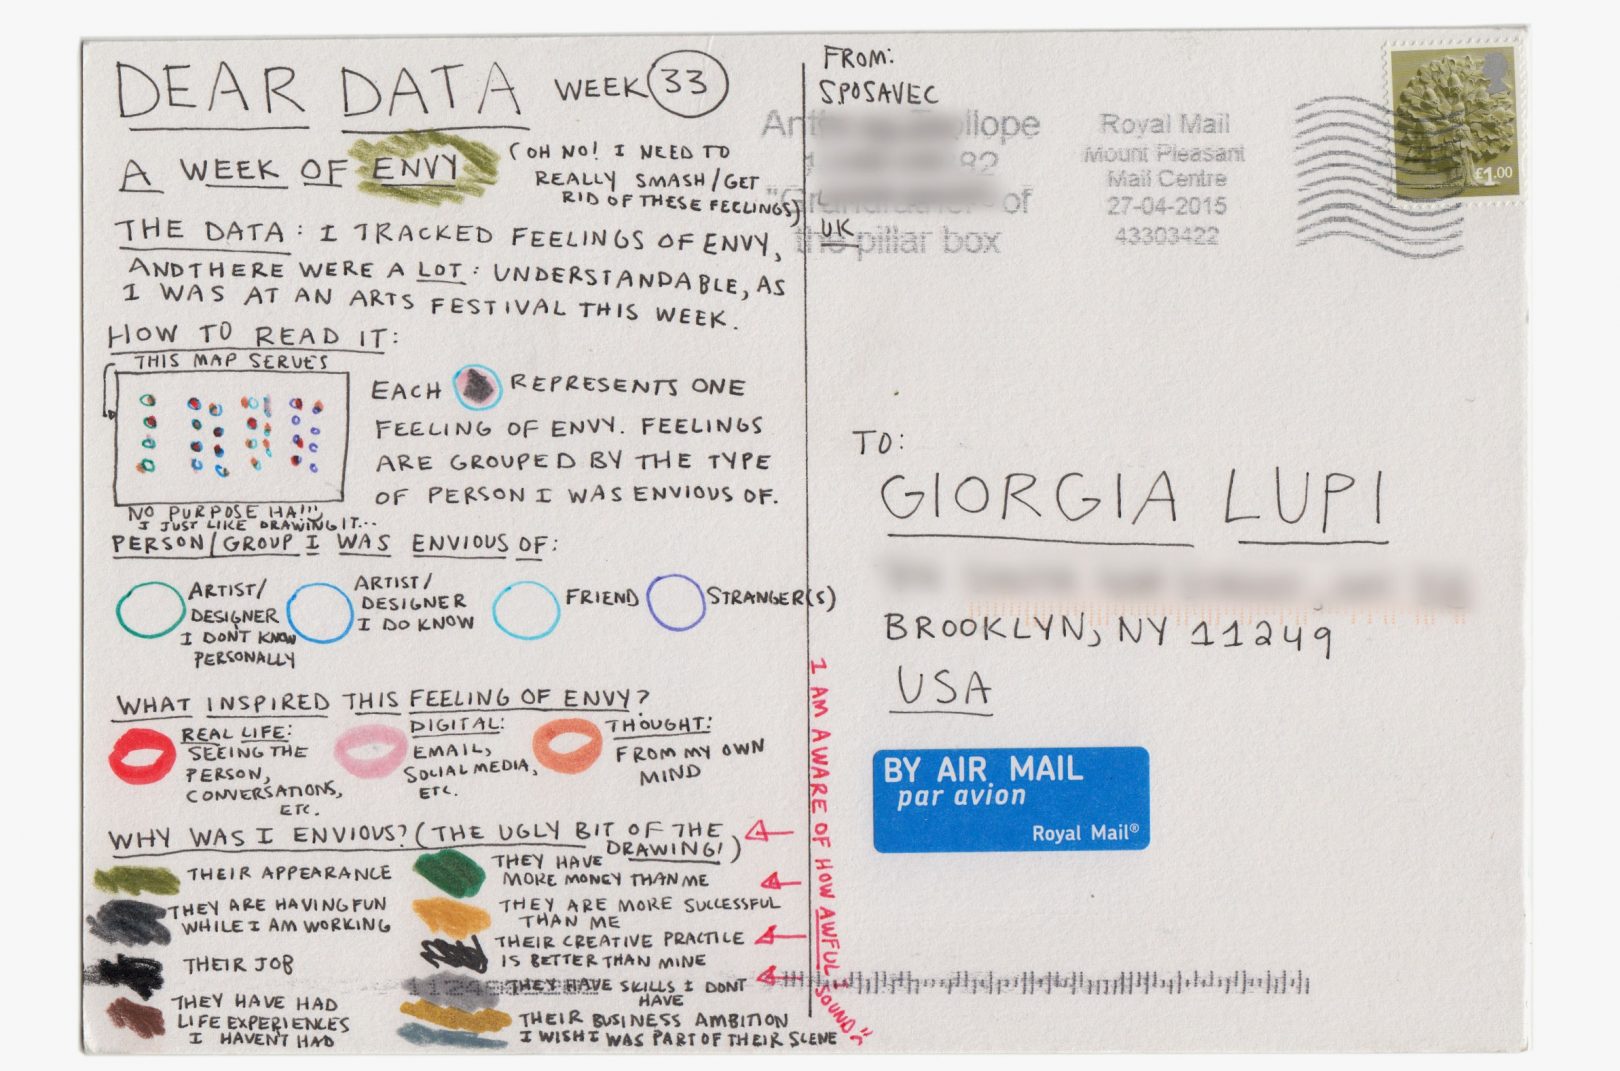 DEAR DATA WEEK 33
A WEEK OF ENVY
(OH NO! I NEED TO
REALLY SMASH/GET
RID OF THESE FEELINGS)
THE DATA: I TRACKED FEELINGS OF ENVY,
AND THERE WERE A LOT: UNDERSTANDABLE, AS
I WAS AT AN ARTS FESTIVAL THIS WEEK.
HOW TO READ IT:
THIS MAP SERVES
NO PURPOSE HA!!!
I JUST LIKE DRAWING IT...
EACH REPRESENTS ONE
FEELING OF ENVY. FEELINGS
ARE GROUPED BY THE TYPE
OF PERSON I WAS ENVIOUS OF.
PERSON/GROUP I WAS ENVIOUS OF:
ARTIST/
DESIGNER
I DON'T KNOW
PERSONALLY
ARTIST/
DESIGNER
I DO KNOW
FRIEND
STRANGER(S)
WHAT INSPIRED THIS FEELING OF ENVY?
REAL LIFE:
SEEING THE
PERSON,
CONVERSATIONS,
ETC.
DIGITAL:
EMAIL,
SOCIAL MEDIA,
ETC.
THOUGHT:
FROM MY OWN
MIND
WHY WAS I ENVIOUS? (THE UGLY BIT OF THE
DRAWING!)
THEIR APPEARANCE
THEY ARE HAVING FUN
WHILE I AM WORKING
THEIR JOB
THEY HAVE HAD
LIFE EXPERIENCES
I HAVEN'T HAD
THEY HAVE
MORE MONEY THAN ME
THEY ARE MORE SUCCESSFUL
THAN ME
THEIR CREATIVE PRACTICE
IS BETTER THAN MINE
THEY HAVE SKILLS I DON'T
HAVE
THEIR BUSINESS AMBITION
I WISH I WAS PART OF THEIR SCENE
I AM AWARE OF HOW AWFUL I SOUND
FROM:
S.POSAVEC
UK
llope
82
of
the pillar box
Royal Mail
Mount Pleasant
Mail Centre
27-04-2015
43303422
£1.00
TO:
GIORGIA LUPI
BROOKLYN, NY 11249
USA
BY AIR MAIL
par avion
Royal Mail®